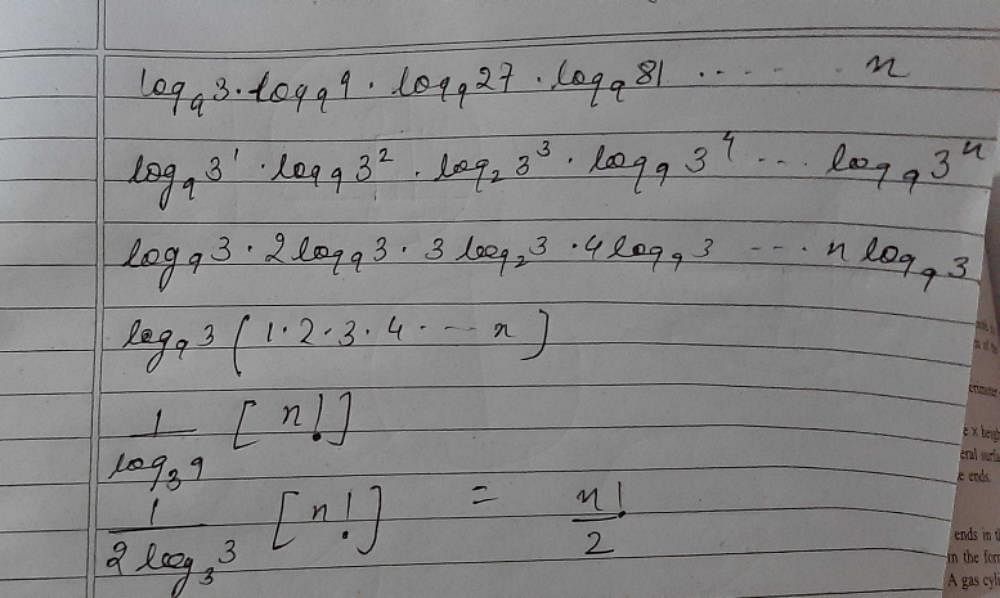 log₉3 · log₉9 · log₉27 · log₉81 ..... n
log₉3¹ · log₉3² · log₂3³ · log₉3⁴ ... log₉3ⁿ
log₉3 · 2log₉3 · 3log₂3 · 4log₉3 ... n log₉3
log₉3 [1·2·3·4 ... n]
1/log₃9 [n!]
1/2log₃3 [n!] = n!/2
e × heigh
e ends.
ends in t
in the for
A gas cyli